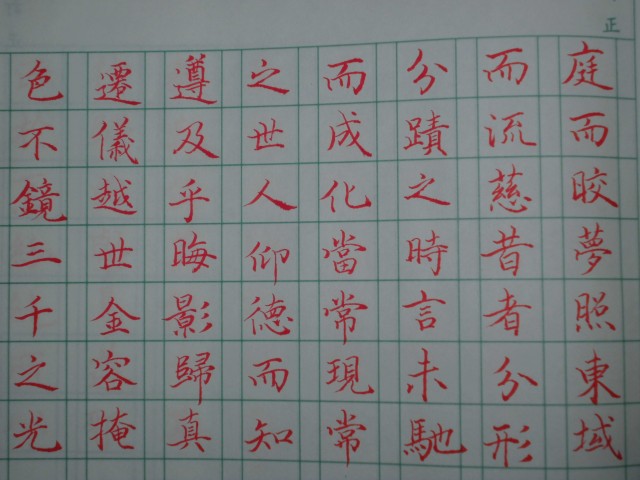 正
庭而晈夢照東域
而流慈昔者分形
分蹟之時言未馳
而成化當常現常
之世人仰德而知
遵及乎晦影歸真
遷儀越世金容掩
色不鏡三千之光